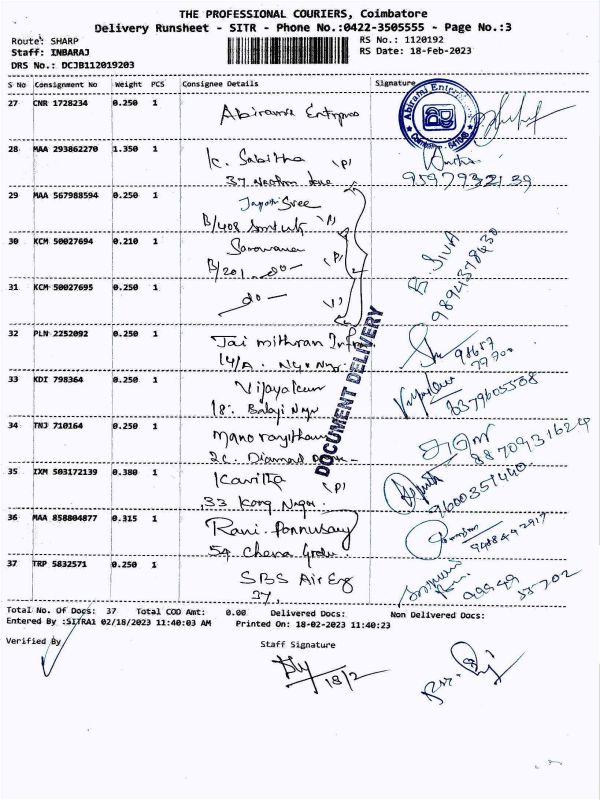 THE PROFESSIONAL COURIERS, Coimbatore
Delivery Runsheet - SITR - Phone No.:0422-3505555 - Page No.:3
Route: SHARP RS No.: 1120192
Staff: INBARAJ RS Date: 18-Feb-2023
DRS No.: DCJB112019203
S No Consignment No Weight PCS Consignee Details Signature
27 CNR 1728234 0.250 1
Abirami
28 MAA 293862270 1.350 1 K. Sabitha (P)
37
9597932139
29 MAA 567988594 0.250 1 Sree
B/408
30 KCM 50027694 0.210 1 Saravana
B/201 - do -
31 KCM 50027695 0.250 1 - do -
R. SIVA
9894378430
32 PLN 2252092 0.250 1 Jai mithran
14/A.
33 KDI 798364 0.250 1 Vijayakumar
18. Balaji Ngr
6379605508
34 TNJ 710164 0.250 1
2C. Diamond
8870931624
35 IXM 503172139 0.380 1 Kavitha (P)
33 Nagar
9600351440
36 MAA 858804877 0.315 1 Rani. Ponnusamy
54
9488492917
37 TRP 5832571 0.250 1 SBS Air Eng
37,
99949 55702
DOCUMENT DELIVERY
Total No. Of Docs: 37 Total COD Amt: 0.00 Delivered Docs: Non Delivered Docs:
Entered By :SITRA1 02/18/2023 11:40:03 AM Printed On: 18-02-2023 11:40:23
Verified By Staff Signature
18/2